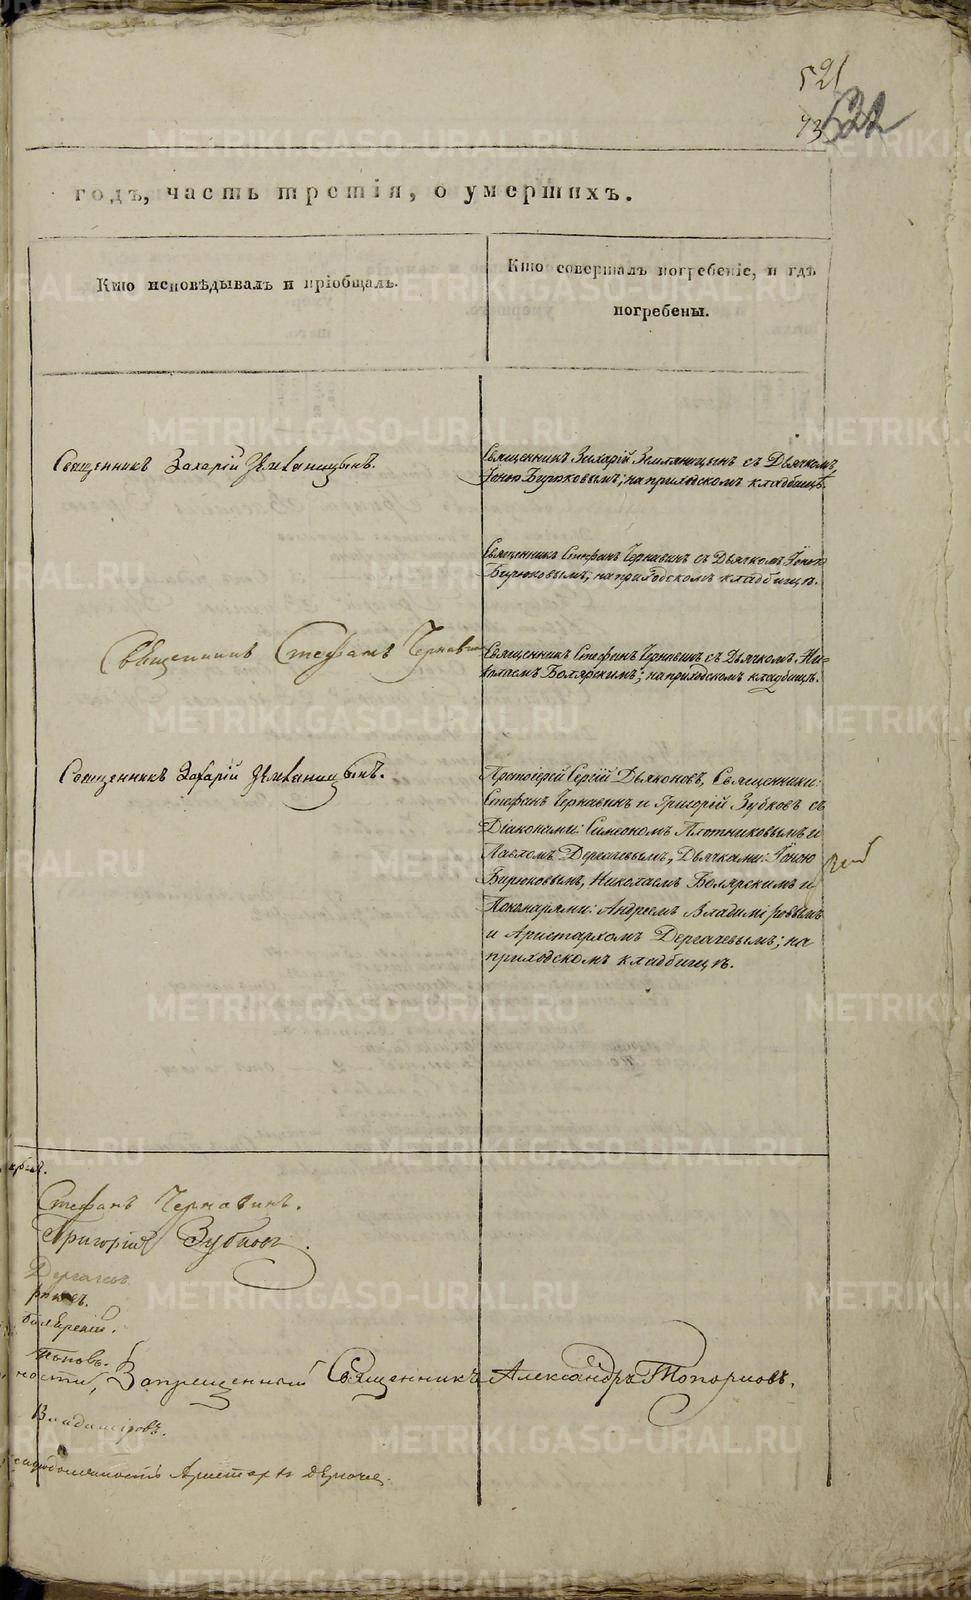 521
522
годъ, часть третія, о умершихъ.
Кто исповѣдывалъ и пріобщалъ.
Кто совершалъ погребеніе, и гдѣ
погребены.
Священникъ Захарій Земляницынъ.
Священникъ Захарій Земляницынъ съ Дьячкомъ
Іоною Бирюковымъ; на приходскомъ кладбищѣ.
Священникъ Стефанъ Чернавинъ съ Дьячкомъ Іоною
Бирюковымъ; на приходскомъ кладбищѣ.
Священникъ Стефанъ Чернавинъ
Священникъ Стефанъ Чернавинъ съ Дьячкомъ Ни-
колаемъ Болярскимъ; на приходскомъ кладбищѣ.
Священникъ Захарій Земляницынъ.
Протоіерей Сергій Дьяконовъ, Священники:
Стефанъ Чернавинъ и Григорій Зубковъ съ
Діаконами: Симеономъ Плотниковымъ и
Павломъ Дергачевымъ, Дьячками: Іоною
Бирюковымъ, Николаемъ Болярскимъ и
Пономарями: Андреемъ Владиміровымъ
и Аристархомъ Дергачевымъ; на
приходскомъ кладбищѣ.
Стефанъ Чернавинъ.
Григорій Зубковъ.
Дергачевъ
Болярскій.
ность, Запрещенный Священникъ Александръ Топорковъ.
Владиміровъ.
METRIKI.GASO-URAL.RU